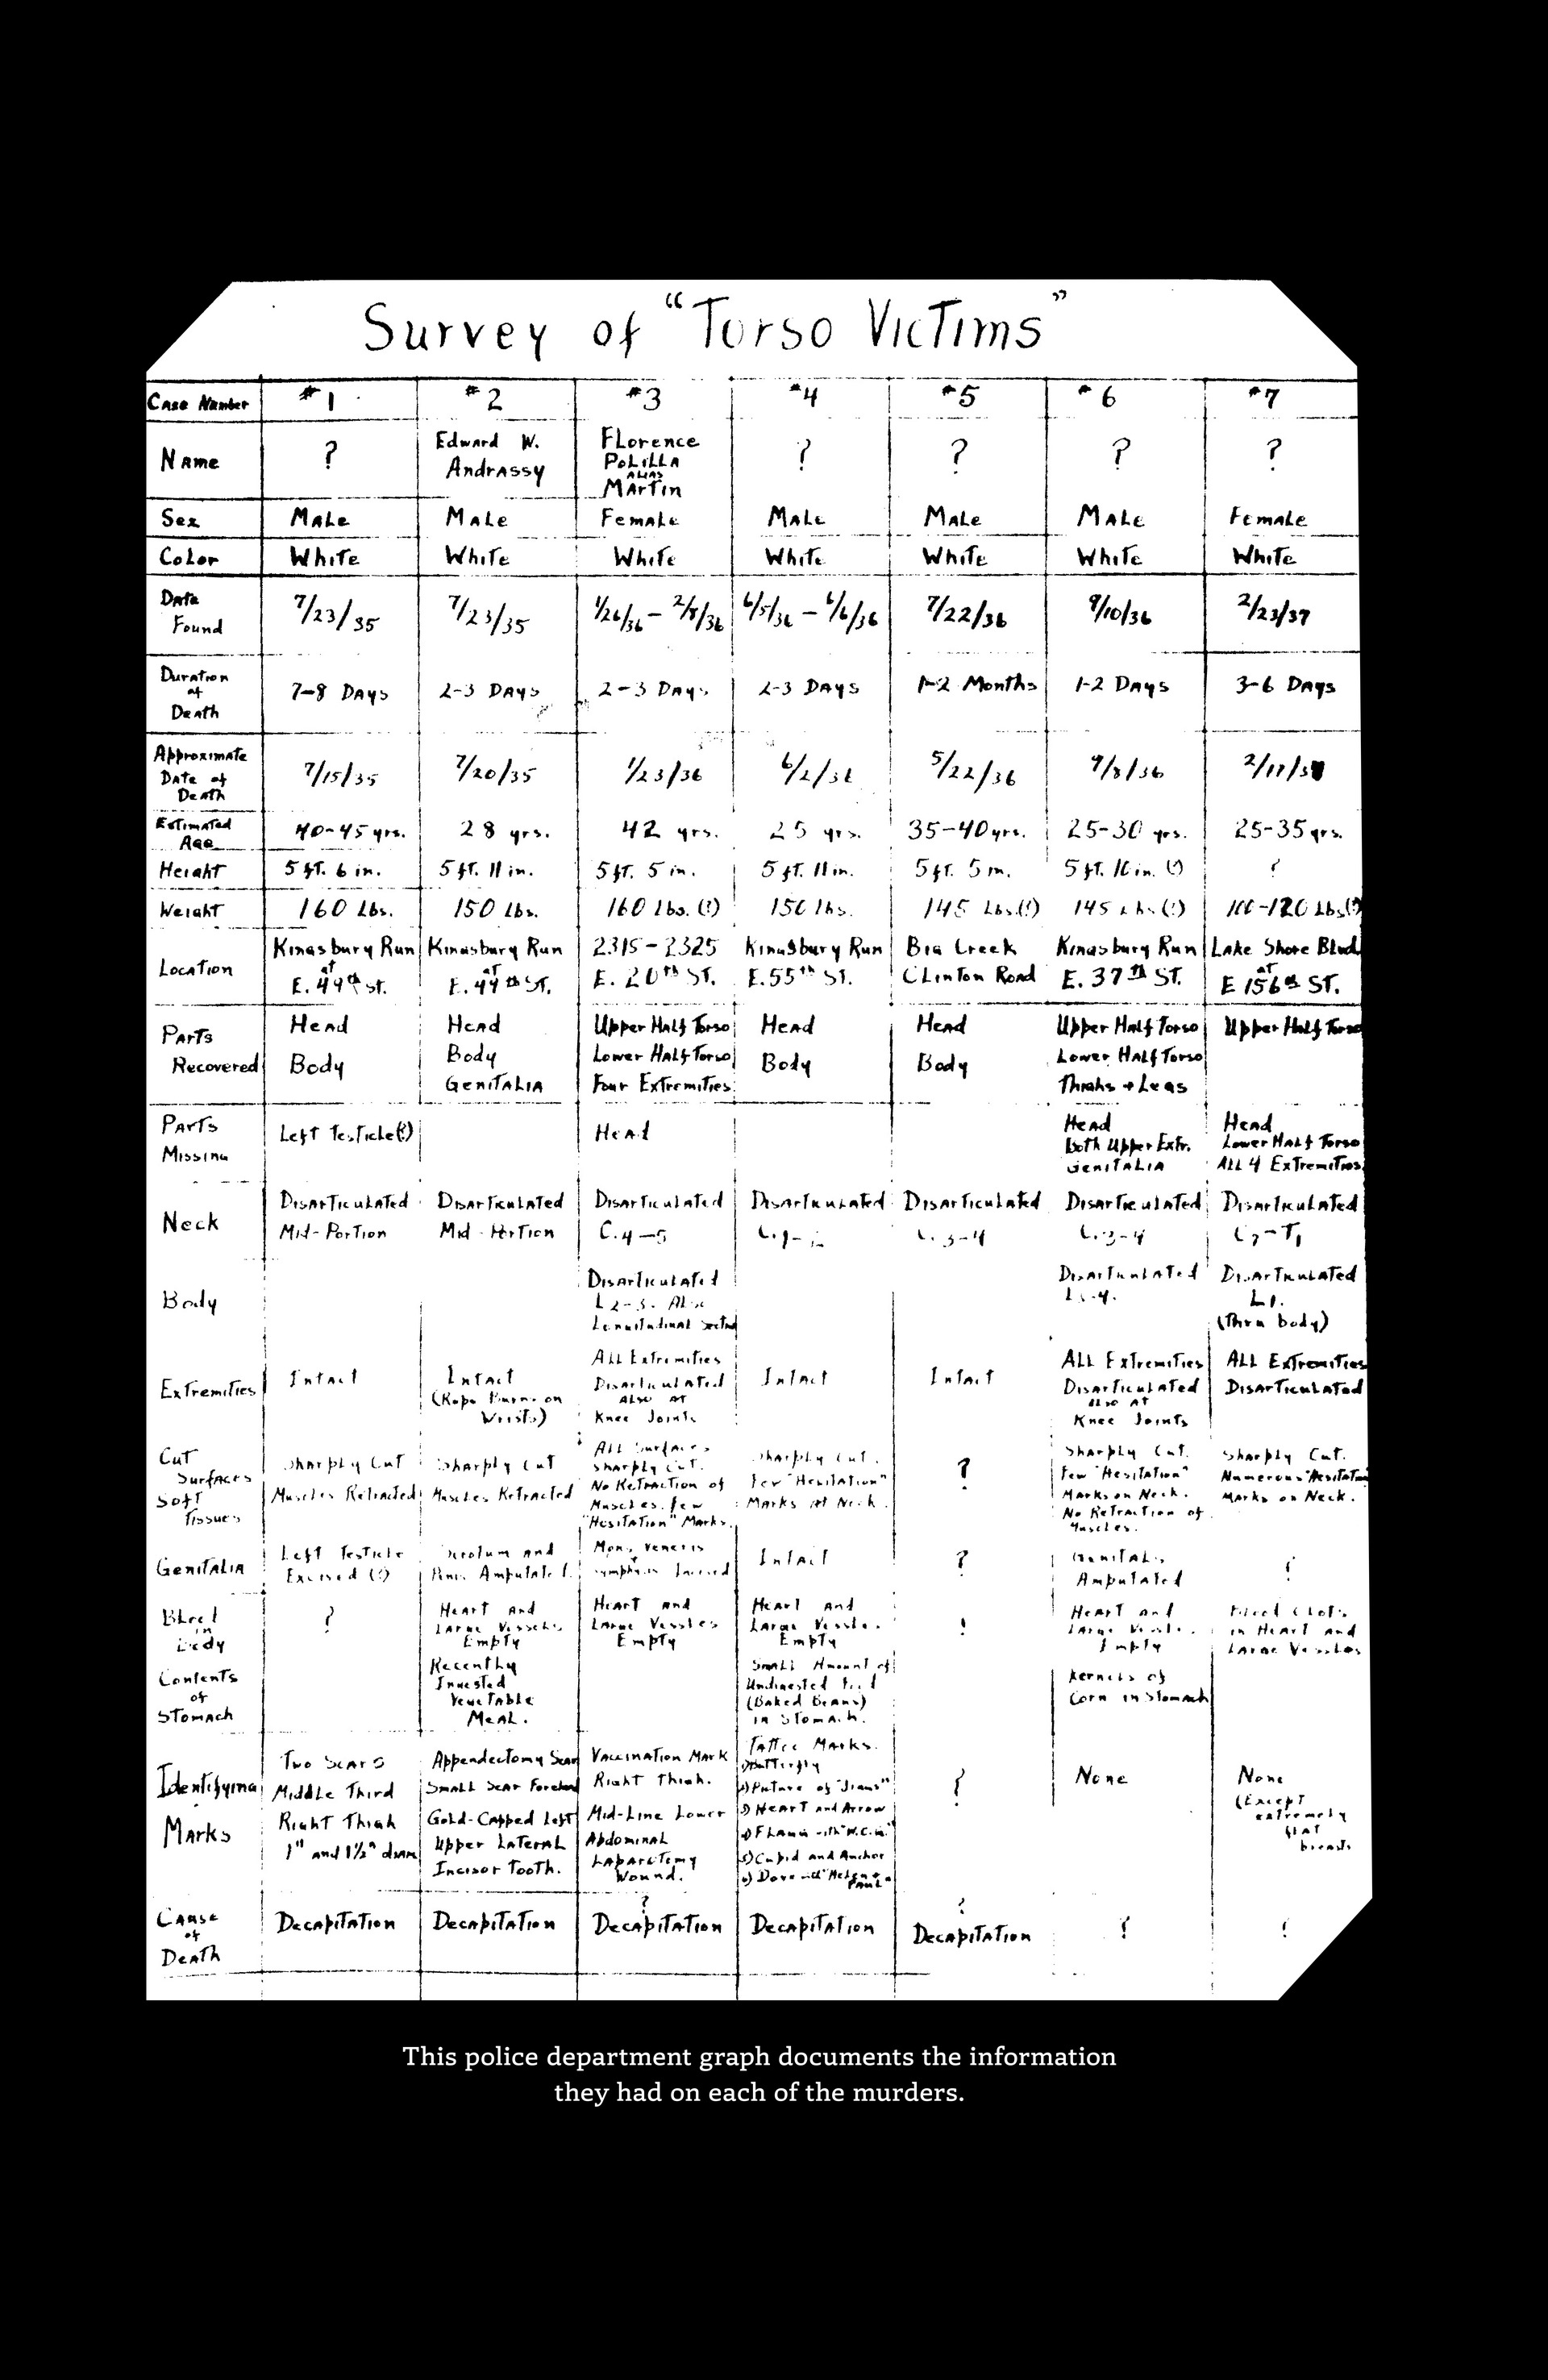 Survey of "Torso Victims"
Case Number #1 #2 #3 #4 #5 #6 #7
Name ? Edward W. Andrassy Florence Polilla alias Martin ? ? ? ?
Sex Male Male Female Male Male Male Female
Color White White White White White White White
Date Found 7/23/35 7/23/35 1/26/36 – 2/8/36 6/5/36 – 6/6/36 7/22/36 9/10/36 2/23/37
Duration of Death 7–8 Days 2–3 Days 2–3 Days 2–3 Days 1–2 Months 1–2 Days 3–6 Days
Approximate Date of Death 7/15/35 7/20/35 1/23/36 6/2/36 5/22/36 9/8/36
Estimated Age 40–45 yrs. 28 yrs. 42 yrs. 25 yrs. 35–40 yrs. 25–30 yrs. 25–35 yrs.
Height 5 ft. 6 in. 5 ft. 11 in. 5 ft. 5 in. 5 ft. 11 in. 5 ft. 5 in. 5 ft. 10 in. (?) ?
Weight 160 Lbs. 150 Lbs. 160 Lbs. (?) 150 Lbs. 145 Lbs. (?) 145 Lbs. (?) 100–120 Lbs. (?)
Location Kingsbury Run at E. 49th St. Kingsbury Run at E. 49th St. 2315–2325 E. 20th St. Kingsbury Run E. 55th St. Big Creek Clinton Road Kingsbury Run E. 37th St. Lake Shore Blvd. at E 156th St.
Parts Recovered Head Body Head Body Genitalia Upper Half Torso Lower Half Torso Four Extremities Head Body Head Body Upper Half Torso Lower Half Torso Thighs + Legs Upper Half Torso
Parts Missing Left Testicle (?) Head Head Both Upper Extr. Genitalia Head Lower Half Torso All 4 Extremities
Neck Disarticulated Mid-Portion Disarticulated Mid-Portion Disarticulated C.4–5 Disarticulated Disarticulated C.3–4 Disarticulated C.3–4 Disarticulated C7–T1
Body Disarticulated L 2–3. Also Longitudinal Disarticulated Disarticulated L1. (Thru body)
Extremities Intact Intact (Rope Burns on Wrists) All Extremities Disarticulated also at Knee Joints Intact Intact All Extremities Disarticulated also at Knee Joints All Extremities Disarticulated
Cut Surfaces Soft Tissues Sharply Cut Muscles Retracted Sharply Cut Muscles Retracted All Surfaces Sharply Cut. No Retraction of Muscles. Few "Hesitation" Marks. Sharply Cut. Few "Hesitation" Marks at Neck. ? Sharply Cut. Few "Hesitation" Marks on Neck. No Retraction of Muscles. Sharply Cut. Numerous "Hesitation" Marks on Neck.
Genitalia Left Testicle Excised (?) Scrotum and Penis Amputated. Mons Veneris Symphysis Incised Intact ? Genitals Amputated ?
Blood in Body ? Heart and Large Vessels Empty Heart and Large Vessles Empty Heart and Large Vessles Empty ? Heart and Large Vessles Empty Blood Clots in Heart and Large Vessles
Contents of Stomach Recently Ingested Vegetable Meal. Small Amount of Undigested Food (Baked Beans) in Stomach. Kernels of Corn in Stomach
Identifying Marks Two Scars Middle Third Right Thigh 1" and 1½" diam Appendectomy Scar Small Scar Forehead Gold-Capped Left Upper Lateral Incisor Tooth. Vaccination Mark Right Thigh. Mid-Line Lower Abdominal Laparotomy Wound. Tattoo Marks. 1) Butterfly 2) Picture of "Jiggs" 3) Heart and Arrow 4) 5) Cupid and Anchor 6) Dove with "Helen + Paul" ? None None (Except extremely flat breasts
Cause of Death Decapitation Decapitation ? Decapitation Decapitation ? Decapitation ? ?
This police department graph documents the information
they had on each of the murders.